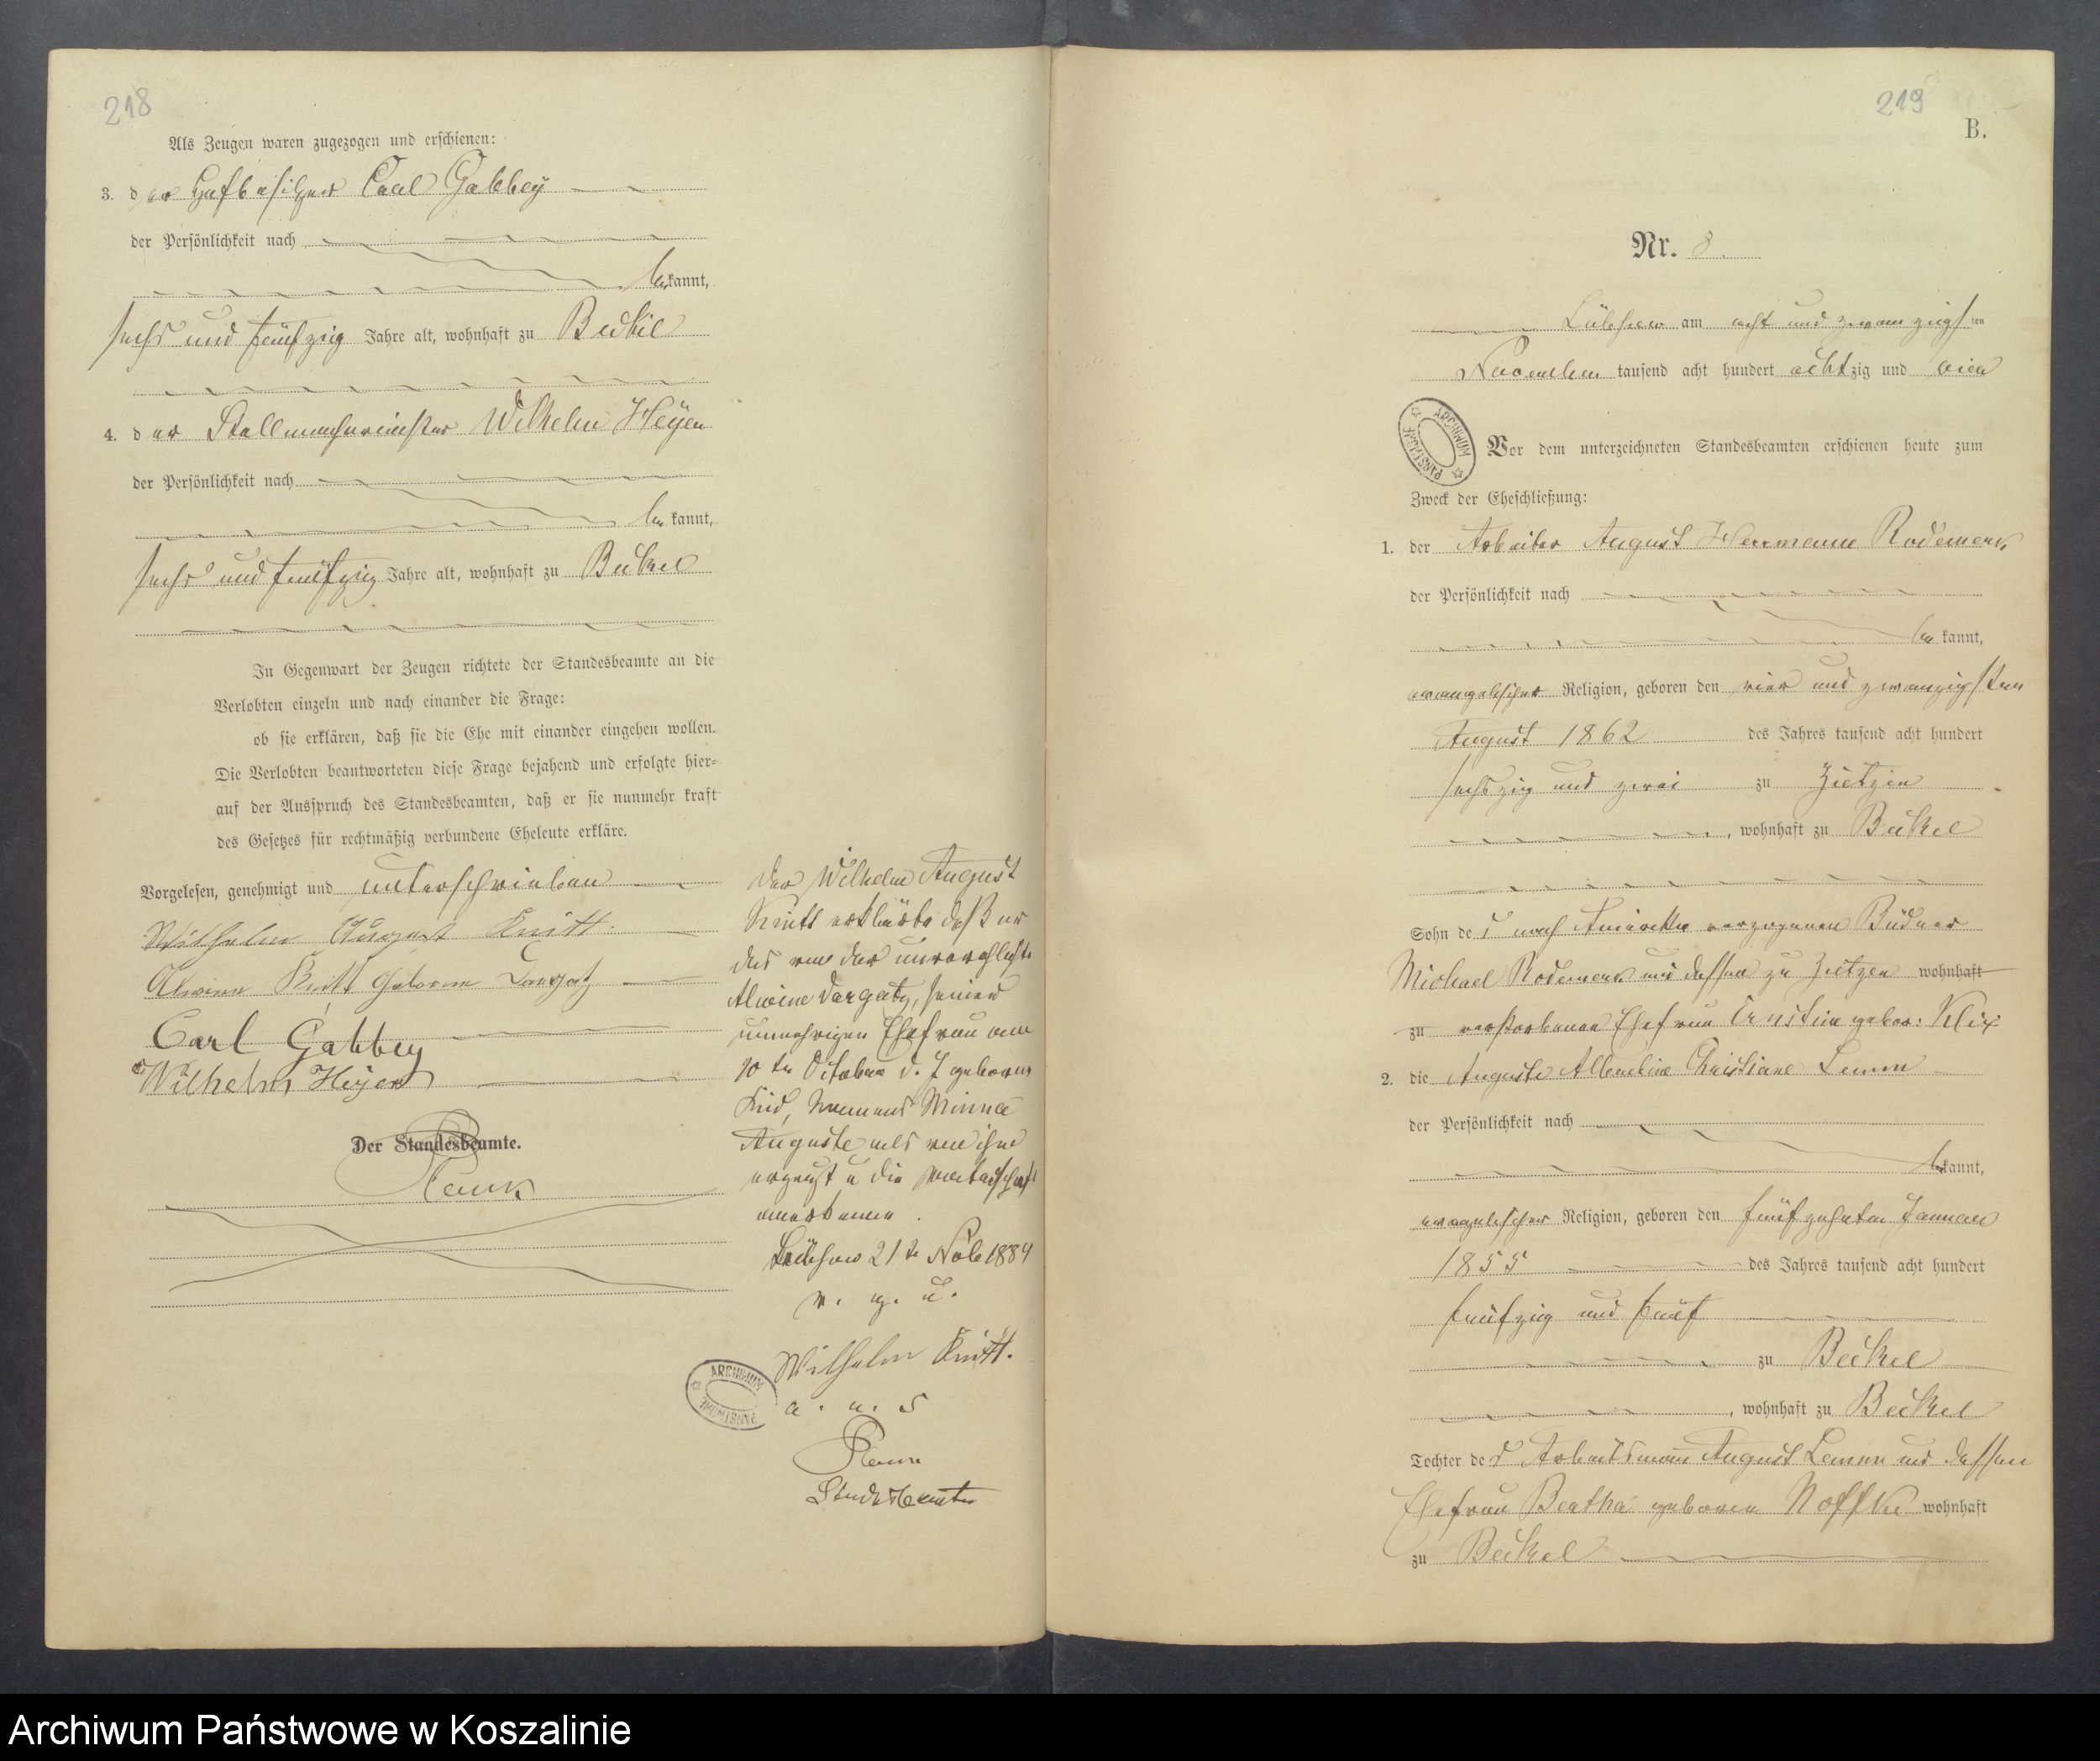 218
Als Zeugen waren zugezogen und erschienen:
3. der Hofbesitzer Carl Gabbey
der Persönlichkeit nach
bekannt,
sechs und fünfzig Jahre alt, wohnhaft zu Beckel
4. der Stellmachermeister Wilhelm Heyer
der Persönlichkeit nach
bekannt,
sechs und fünfzig Jahre alt, wohnhaft zu Beckel
In Gegenwart der Zeugen richtete der Standesbeamte an die
Verlobten einzeln und nach einander die Frage:
ob sie erklären, daß sie die Ehe mit einander eingehen wollen.
Die Verlobten beantworteten diese Frage bejahend und erfolgte hier-
auf der Ausspruch des Standesbeamten, daß er sie nunmehr kraft
des Gesetzes für rechtmäßig verbundene Eheleute erkläre.
Vorgelesen, genehmigt und unterschrieben
Wilhelm August Knitt
Alwine Knitt geborene Dargatz
Carl Gabbey
Wilhelm Heyer
Der Standesbeamte.
Der Wilhelm August
Knitt erklärte daß er
das von der unverehlichte
Alwine Dargatz, seiner
nunmehrigen Ehefrau am
10 ten October d. J geborene
Kind, Namens Minna
Auguste als von ihm
erzeugt u die Vaterschaft
anerkenne.
Lübsow 21 te Nobr 1884
v. g. u.
Wilhelm Knitt.
a. u. s
Standesbeamter
ARCHIWUM PAŃSTWOWE
219
B.
Nr. 8.
Lübsow am acht und zwanzigsten
November tausend acht hundert achtzig und vier
ARCHIWUM PAŃSTWOWE
Vor dem unterzeichneten Standesbeamten erschienen heute zum
Zweck der Eheschließung:
1. der Arbeiter August Herrmann Rodemerk
der Persönlichkeit nach
bekannt,
evangelischer Religion, geboren den vier und zwanzigsten
August 1862 des Jahres tausend acht hundert
sechszig und zwei zu Zietzen
, wohnhaft zu Beckel
Sohn des nach Amerika verzogenen Büdner
Michael Rodemerk und dessen zu Zietzen wohnhaft
zu verstorbenen Ehefrau Ernstine gebor: Klix
2. die Auguste Albertine Christiane Lemm
der Persönlichkeit nach
bekannt,
evangelischer Religion, geboren den fünfzehnten Januar
1855 des Jahres tausend acht hundert
fünfzig und fünf
zu Beckel
, wohnhaft zu Beckel
Tochter des Arbeitsmann August Lemm und dessen
Ehefrau Bertha geborene Noffke wohnhaft
zu Beckel
Archiwum Państwowe w Koszalinie